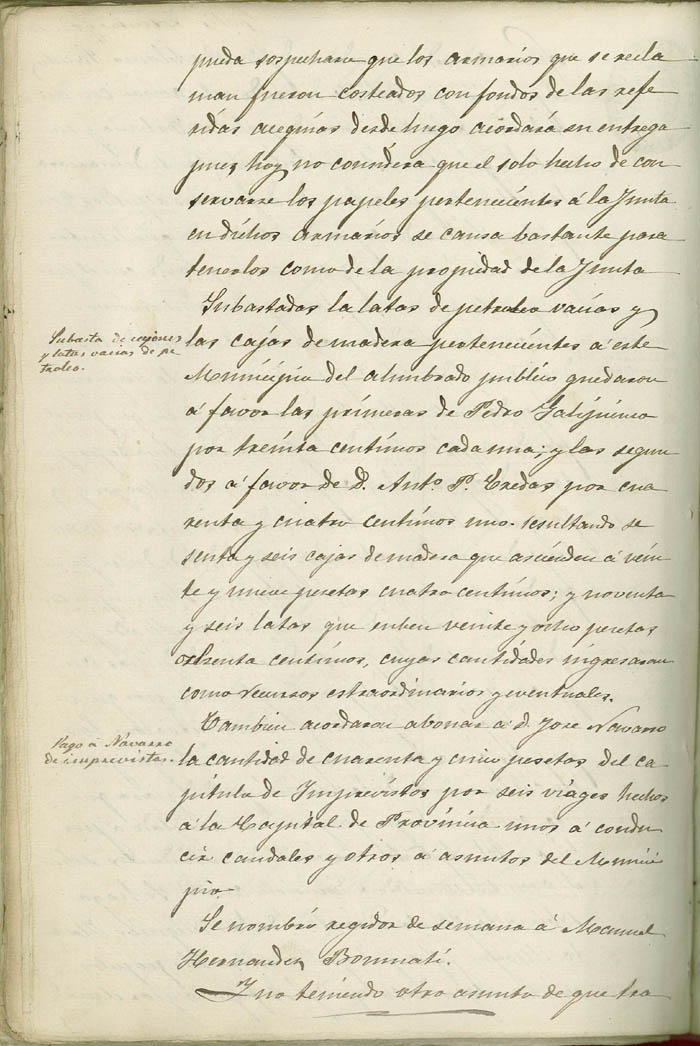 pueda sospechare que los armarios que se recla
man fueron costeados con fondos de las refe
ridas acequias desde luego acordará su entrega
pues hoy no considera que el solo hecho de con
servarse los papeles pertenecientes á la Junta
en dichos armarios se causa bastante para
tenerlos como de la propiedad de la Junta
Subastadas la latas de petroleo vacias y
Subasta de cajones
y latas vacias de pe
troleo.
las cajas de madera pertenecientes á este
Municipio del alumbrado publico quedaron
á favor las primeras de Pedro
por treinta centimos cada una; y las segun
das á favor de D. Antº P. Tredas por cua
renta y cuatro centimos uno. resultando se
senta y seis cajas de madera que ascienden á vein
te y nueve pesetas cuatro centimos; y noventa
y seis latas que suben veinte y ocho pesetas
ochenta centimos, cuyas cantidades ingresaran
como recursos extraordinarios y eventuales.
Tambien acordaron abonar á D. Jose Navarro
Pago á Navarro
de imprevistos.
la cantidad de cuarenta y cinco pesetas del ca
pitulo de Imprevistos por seis viages hechos
á la Capital de Provincia unos á condu
cir caudales y otros á asuntos del Munici
pio.
Se nombró regidor de semana á Manuel
Hernandez Bonmatí.
Y no teniendo otro asunto de que tra